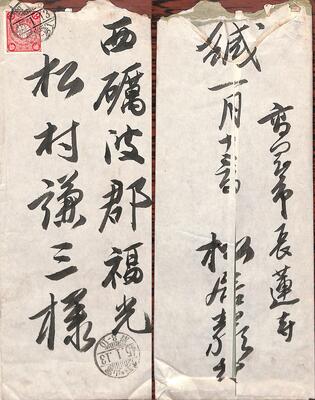 西礪波郡福光
松村謙三様
緘
一月十三日
高岡市長蓮寺
松
15.1.13